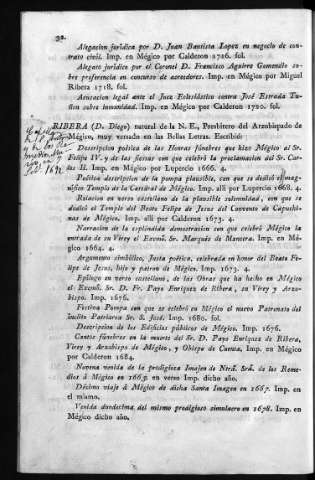 32.
Alegacion jurídica por D. Juan Bautista Lopez en negocio de con-
trato civil. Imp. en Mégico por Calderon 1716. fol.
Alegato jurídico por el Coronel D. Francisco Aguirre Gomendio so-
bre preferencia en concurso de acreedores. Imp. en Mégico por Miguel
Ribera 1718. fol.
Acusacion legal ante el Juez Eclesiástico contra José Estrada Tu-
ñon sobre inmunidad. Imp. en Mégico por Calderon 1720. fol.
RIBERA (D. Diego) natural de la N. E., Presbítero del Arzobispado de
Mégico, muy versado en las Bellas Letras. Escribió
Descripcion poética de las Honras fúnebres que hizo Mégico al Sr.
Felipe IV. y de las fiestas con que celebró la proclamacion del Sr. Car-
los II. Imp. en Mégico por Lupercio 1666. 4.
Poética descripcion de la pompa plausible, con que se dedicó el mag-
nífico Templo de la Catedral de Mégico. Imp. allí por Lupercio 1668. 4.
Relacion en verso castellano de la plausible solemnidad, con que se
dedicó el Templo del Beato Felipe de Jesus del Convento de Capuchi-
nas de Mégico. Imp. allí por Calderon 1673. 4.
Narracion de la espléndida demostracion con que celebró Mégico la
entrada de su Virey el Excmô. Sr. Marqués de Mancera. Imp. en Mé-
gico 1664. 4.
Argumento simbólico, Justa poética, celebrada en honor del Beato Fe-
lipe de Jesus, hijo y patron de Mégico. Imp. 1673. 4.
Epílogo en verso castellano, de las Obras que ha hecho en Mégico
el Excmô. Sr. D. Fr. Payo Enriquez de Ribera, su Virey y Arzo-
bispo. Imp. 1676.
Festiva Pompa con que se celebró en Mégico el nuevo Patronato del
ínclito Patriarca Sr. S. José. Imp. 1680. fol.
Descripcion de los Edificios públicos de Mégico. Imp. 1676.
Cantos fúnebres en la muerte del Sr. D. Payo Enriquez de Ribera,
Virey y Arzobispo de Mégico, y Obispo de Cuenca, Imp. en Mégico
por Calderon 1684.
Novena venida de la prodigiosa Imajen de Ntrâ. Srâ. de los Reme-
dios á Mégico en 1663. en verso Imp. dicho año.
Décima viaje á Mégico de dicha Santa Imagen en 1667. Imp. en
el mismo.
Venida duodecima del mismo prodigioso simulacro en 1678. Imp. en
Mégico dicho año.